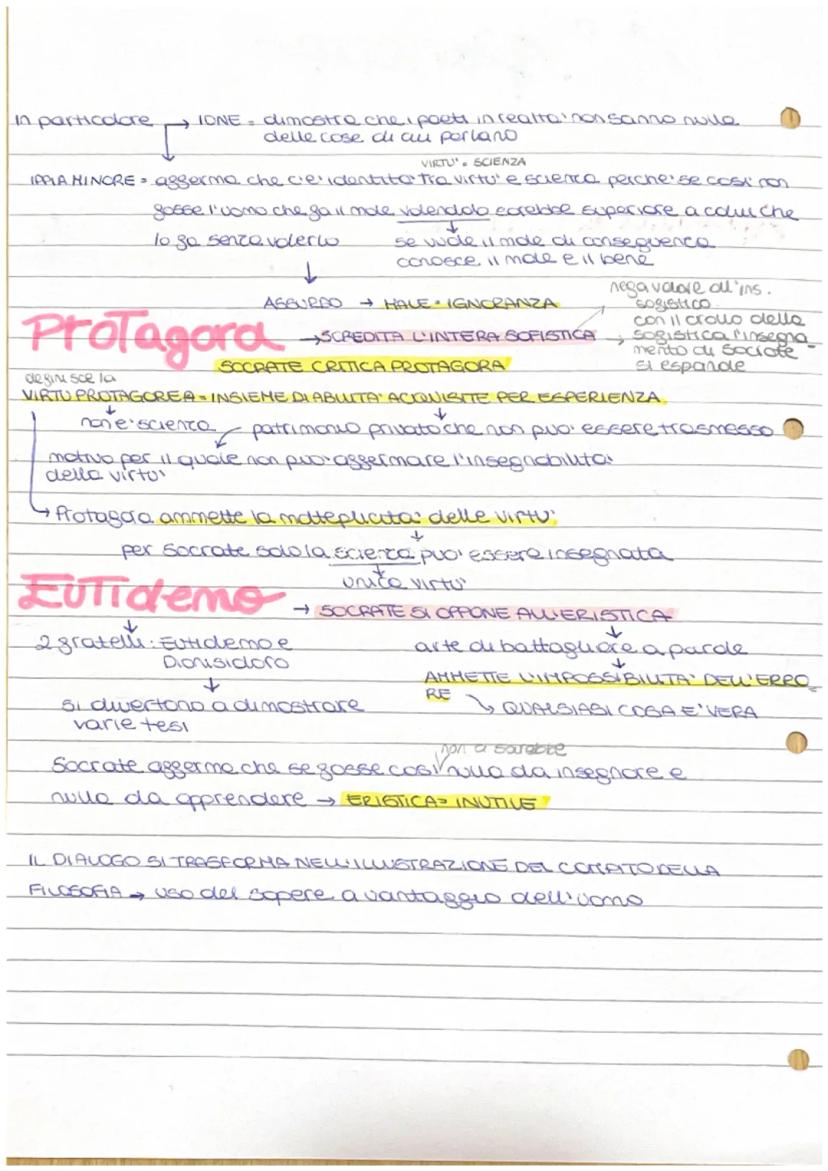 In particolare → IONE = dimostra che i poeti in realta' non sanno nulla
delle cose di cui parlano
VIRTU' = SCIENZA
IPPIA MINORE = afferma che c'e' identita' tra virtu' e scienza perche' se cosi non
fosse l'uomo che fa il male volendolo sarebbe superiore a colui che
lo fa senza volerlo
se vuole il male di conseguenza
conosce il male e il bene
ASSURDO → MALE = IGNORANZA
nega valore all'ins.
sofistico
con il crollo della
sofistica l'insegna-
mento di Socrate
si espande
ProTagora → SCREDITA L'INTERA SOFISTICA
SOCRATE CRITICA PROTAGORA
definisce la
VIRTU PROTAGOREA = INSIEME DI ABILITA' ACQUISITE PER ESPERIENZA
non e' scienza
patrimonio privato che non puo' essere trasmesso
motivo per il quale non puo' affermare l'insegnabilita'
della virtu'
→ Protagora ammette la molteplicita' delle virtu'
per Socrate solo la scienza puo' essere insegnata
unica virtu'
EUTidemo → SOCRATE SI OPPONE ALL'ERISTICA
2 fratelli: Eutidemo e
Dionisidoro
arte di battagliare a parole
AMMETTE L'IMPOSSIBILITA' DELL'ERRO
RE
QUALSIASI COSA E' VERA
si divertono a dimostrare
varie tesi
non ci sarebbe
Socrate afferma che se fosse cosi nulla da insegnare e
nulla da apprendere → ERISTICA = INUTILE
IL DIALOGO SI TRASFORMA NELL'ILLUSTRAZIONE DEL COMPITO DELLA
FILOSOFIA → uso del sapere a vantaggio dell'uomo